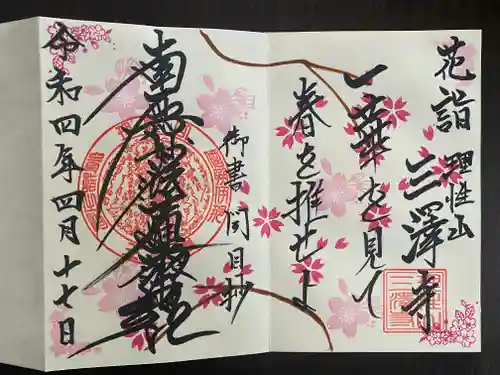 花詣
理性山
三澤寺
一華を見て
春を推せよ
御書 開目抄
南無妙法蓮華経
令和四年四月十七日